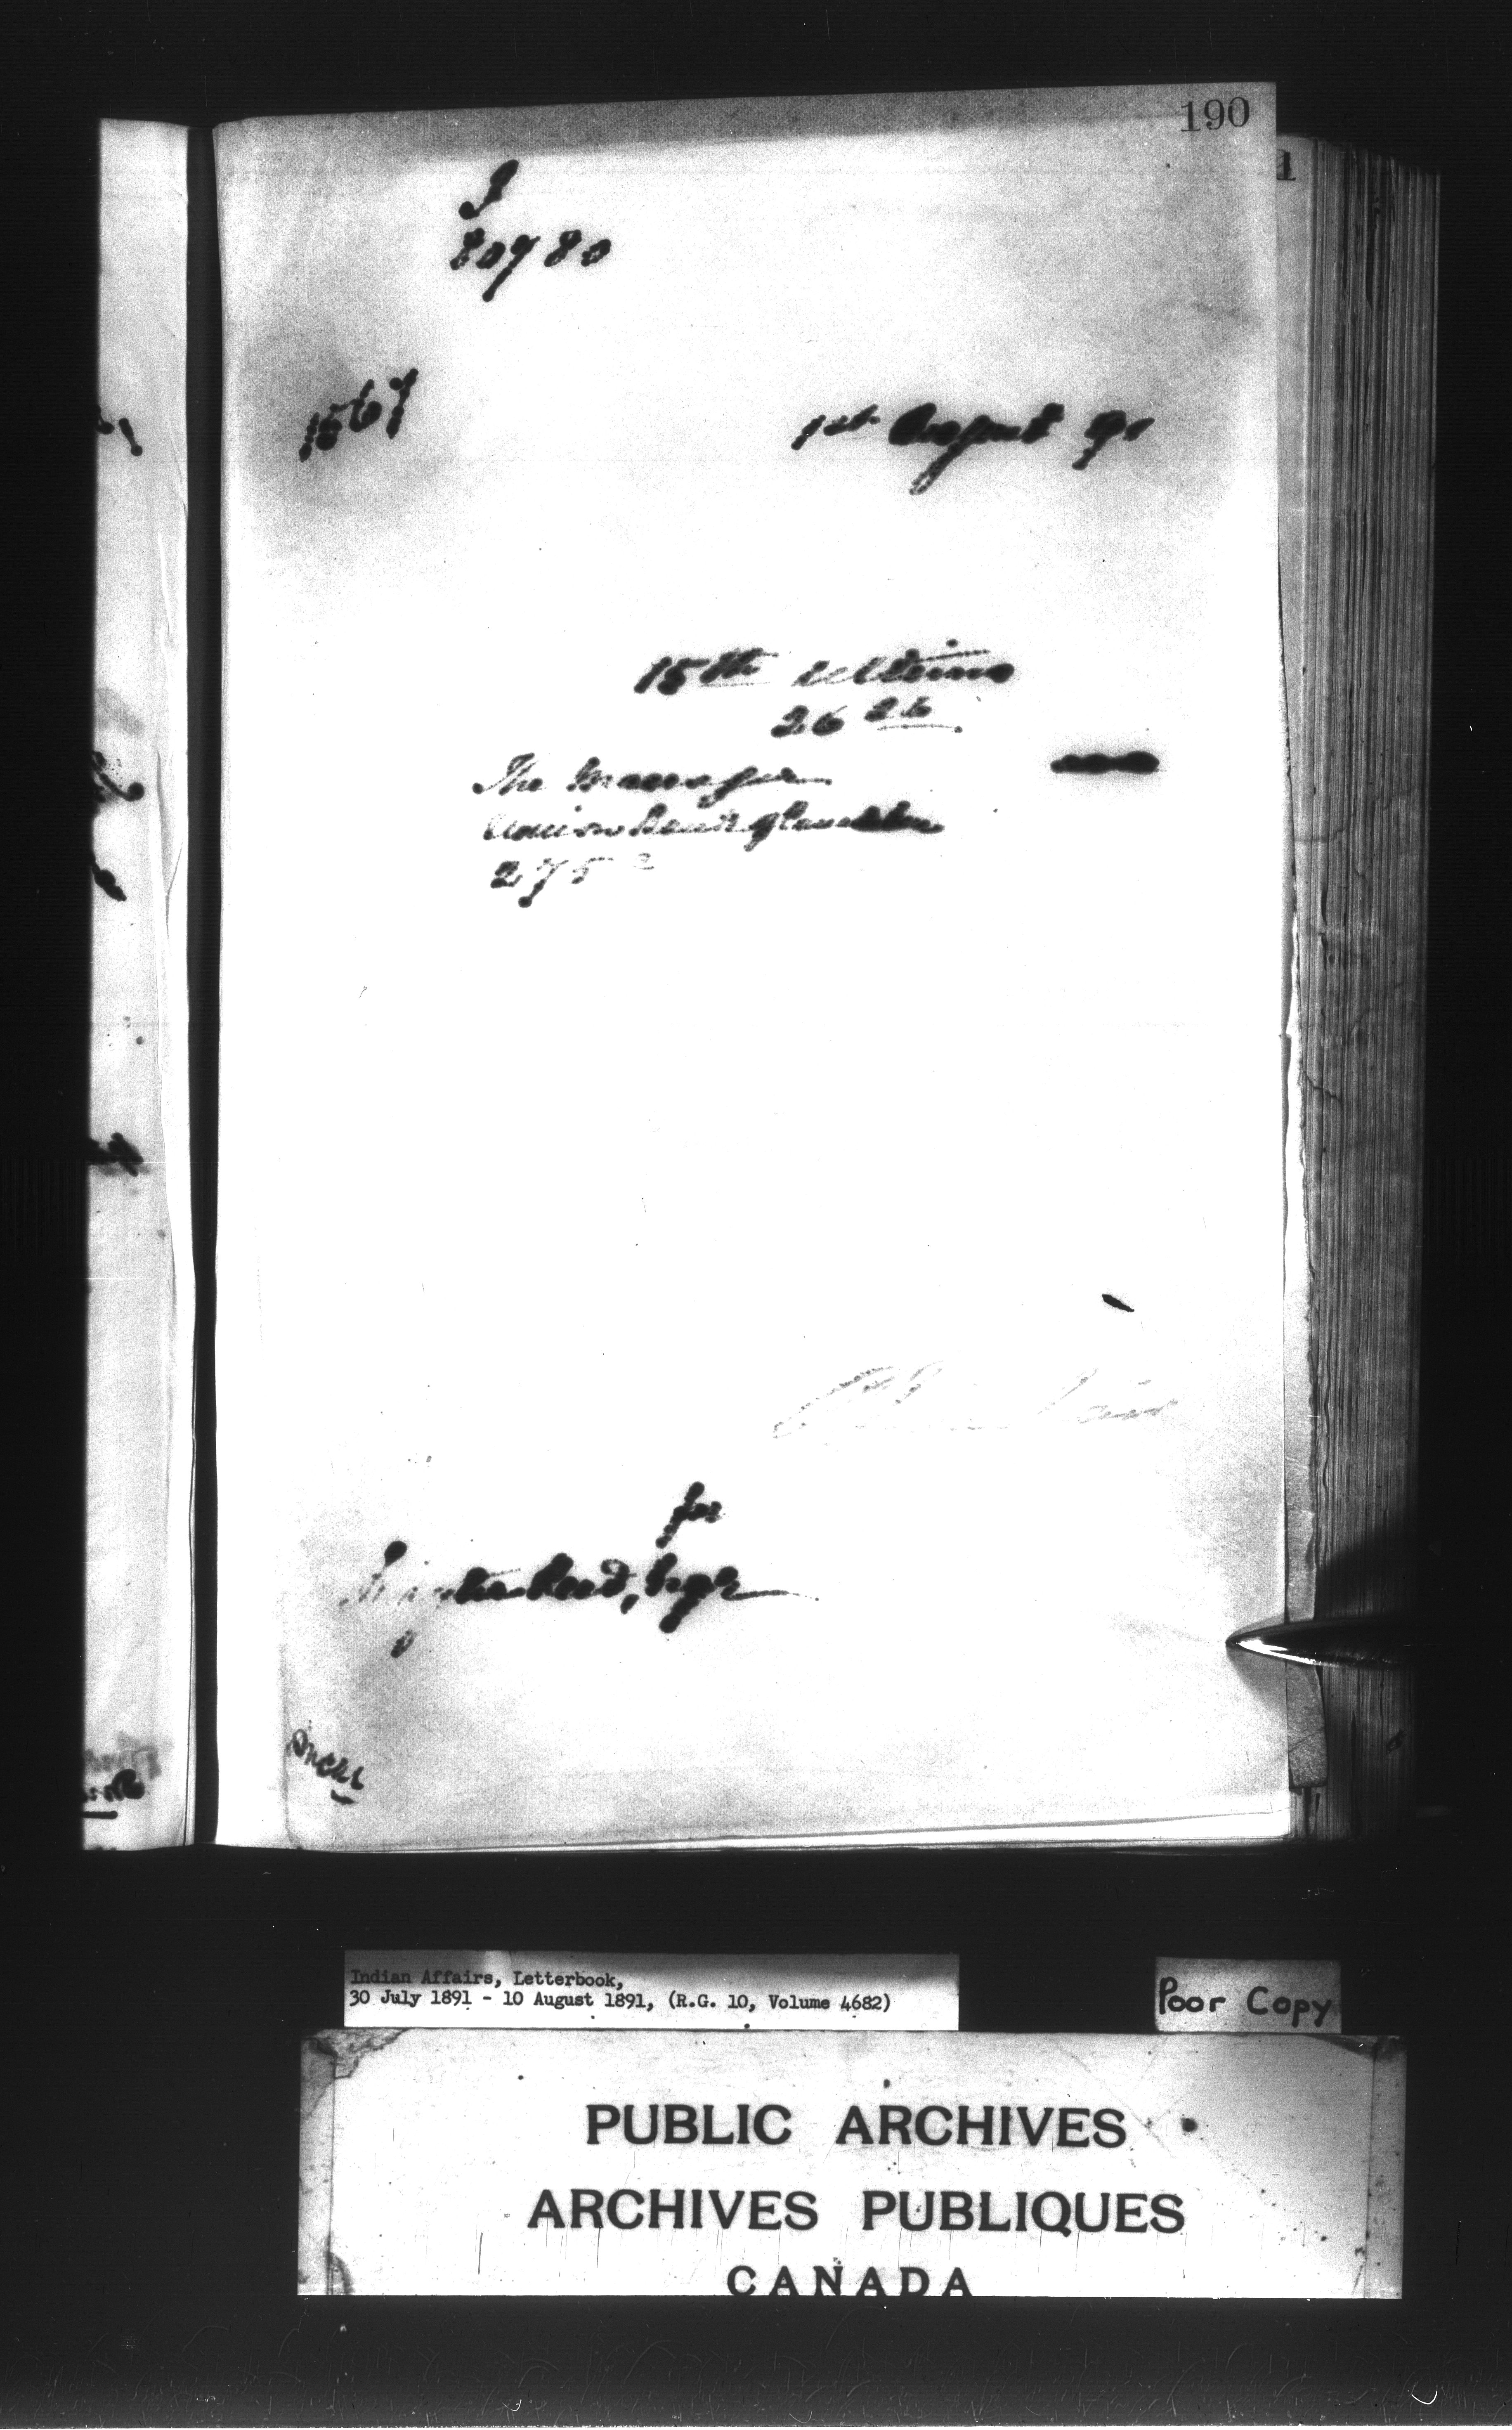 190
80780
1567
1st August 91
15th ultimo
26 26
The Manager
Union Bank of Canada
275
for
Reed, Esqr
Indian Affairs, Letterbook,
30 July 1891 - 10 August 1891, (R.G. 10, Volume 4682)
Poor Copy
PUBLIC ARCHIVES
ARCHIVES PUBLIQUES
CANADA